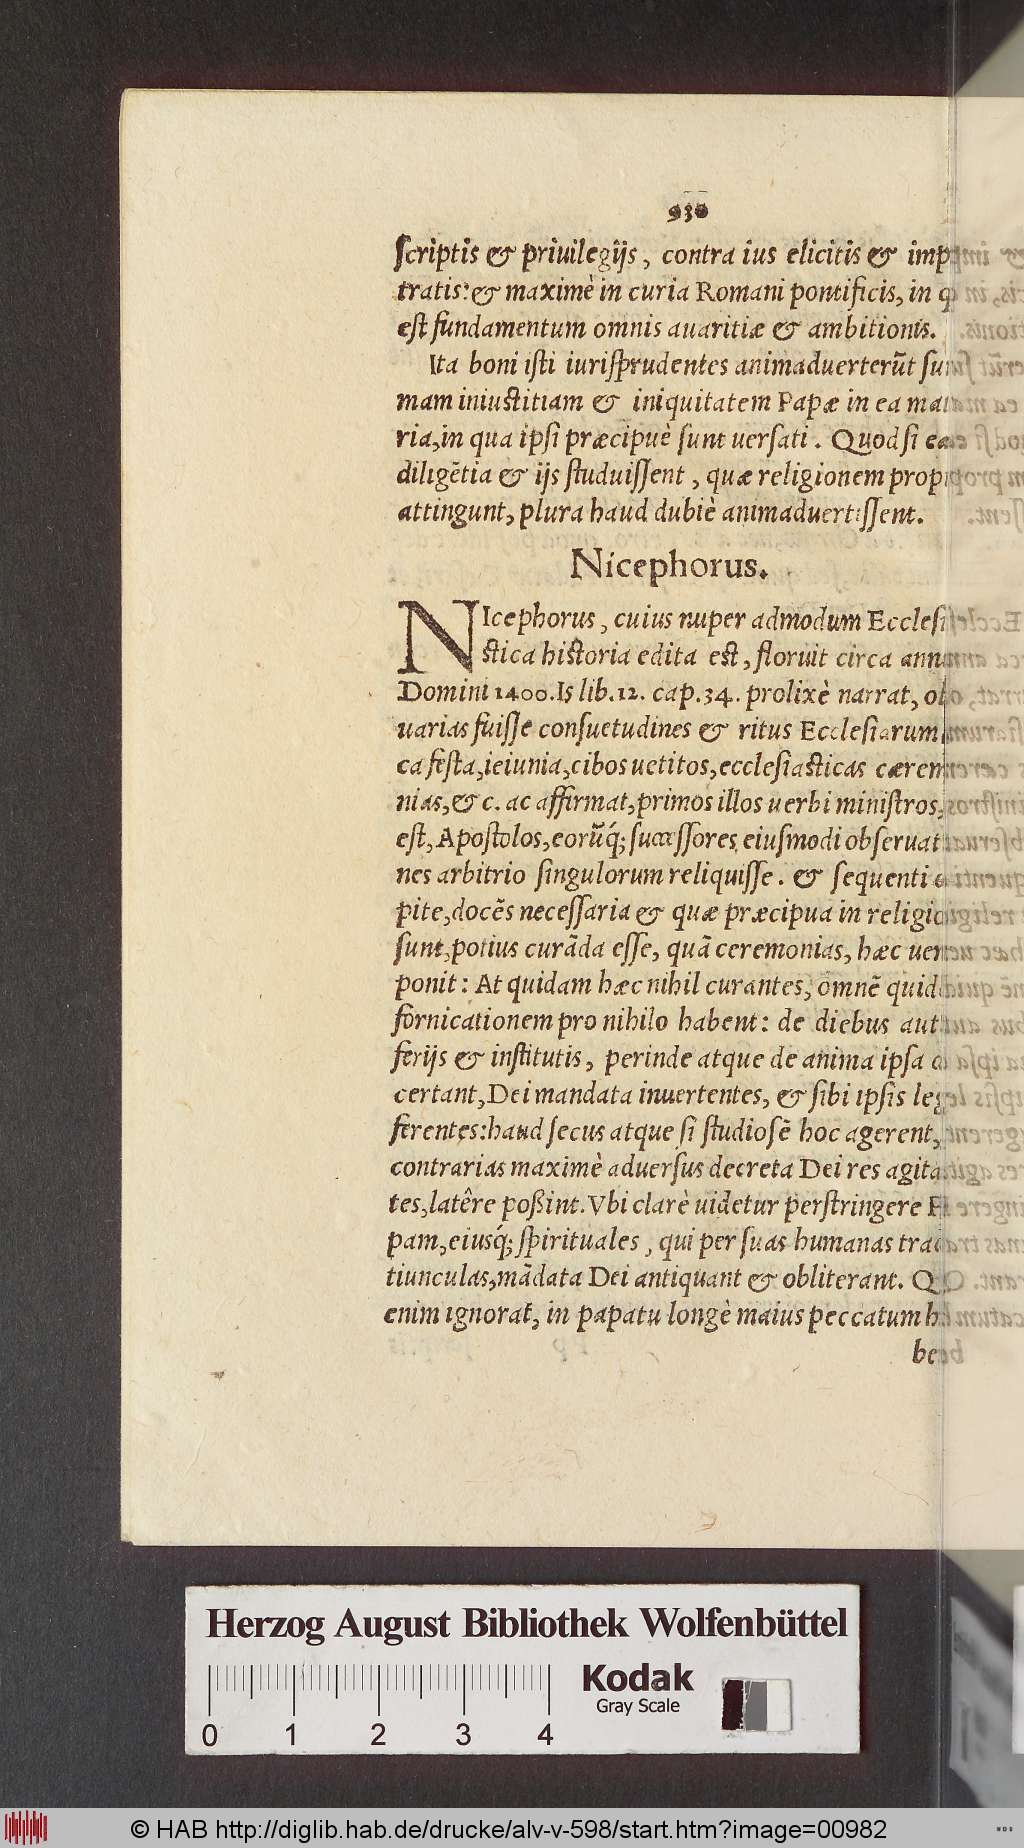 930
scriptis & priuilegijs, contra ius elicitis & imp
tratis: & maximè in curia Romani pontificis, in q
est fundamentum omnis auaritiæ & ambitionis.
Ita boni isti iurisprudentes animaduerterũt sum
mam iniustitiam & iniquitatem Papæ in ea mat
ria, in qua ipsi præcipuè sunt uersati. Quod si ea
diligẽtia & ijs studuissent, quæ religionem propr
attingunt, plura haud dubiè animaduertissent.
Nicephorus.
NIcephorus, cuius nuper admodum Ecclesi
stica historia edita est, floruit circa ann
Domini 1400. Is lib. 12. cap. 34. prolixè narrat, ol
uarias fuisse consuetudines & ritus Ecclesiarum
ca festa, ieiunia, cibos uetitos, ecclesiasticas cærem
nias, & c. ac affirmat, primos illos uerbi ministros,
est, Apostolos, eorũq́; successores, eiusmodi obseruat
nes arbitrio singulorum reliquisse. & sequenti
pite, docẽs necessaria & quæ præcipua in religio
sunt, potius curãda esse, quã ceremonias, hæc uer
ponit: At quidam hæc nihil curantes, omnẽ quid
fornicationem pro nihilo habent: de diebus aut
ferijs & institutis, perinde atque de anima ipsa
certant, Dei mandata inuertentes, & sibi ipsis leg
ferentes: haud secus atque si studiosẽ hoc agerent,
contrarias maximè aduersus decreta Dei res agita
tes, latêre poßint. Vbi clarè uidetur perstringere P
pam, eiusq́; spirituales, qui per suas humanas trad
tiunculas, mãdata Dei antiquant & obliterant. Q
enim ignorat, in papatu longè maius peccatum h
be
Herzog August Bibliothek Wolfenbüttel
Kodak
Gray Scale
0 1 2 3 4
© HAB http://diglib.hab.de/drucke/alv-v-598/start.htm?image=00982